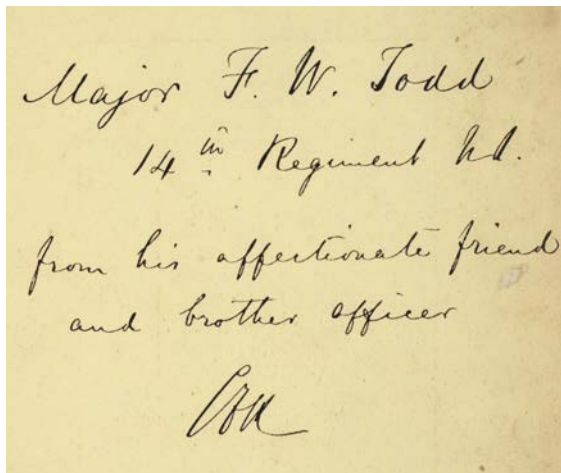 Major F. W. Todd
14th Regiment
from his affectionate friend
and brother officer